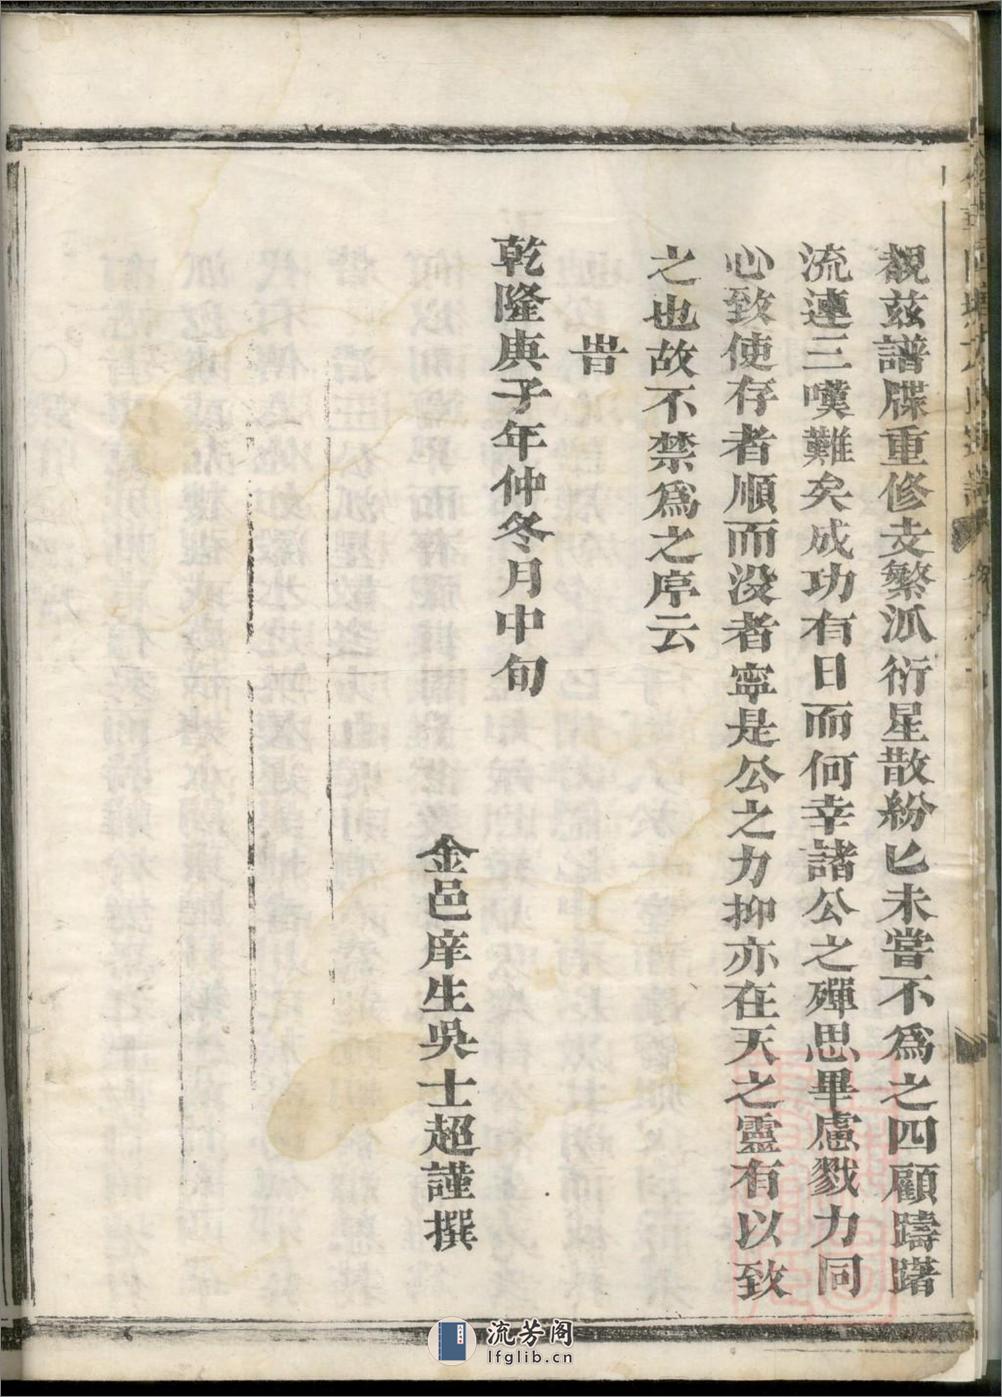 覩茲譜牒重修支繁派衍星散紛匕未嘗不爲之四顧躊躇
流連三嘆難矣成功有日而何幸諸公之殫思畢慮戮力同
心致使存者順而没者寧是公之力抑亦在天之靈有以致
之也故不禁爲之序云
旹
乾隆庚子年仲冬月中旬
金邑庠生吳士超謹撰
流芳阁
lfglib.cn